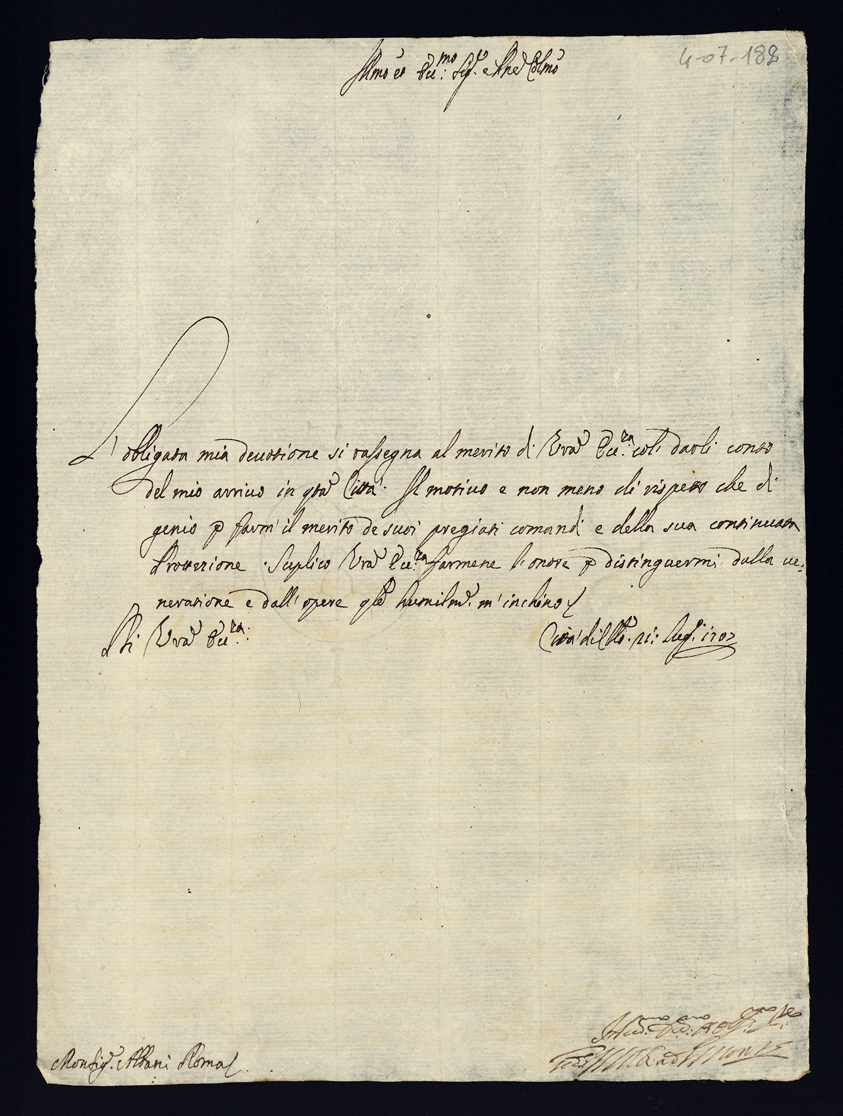 4-07-188
Illmo et Ecc:mo Sig.r e Pne Colmo
L'obligata mia devotione si rassegna al merito di Vra Ecc:za col' darli conto
del mio arrivo in qta Città. Il motivo e non meno di rispetto che di
genio p farmi il merito de suoi pregiati comandi e della sua continuata
Protezione. Suplico Vra Ecc:za farmene l'onore p distinguermi dalla ve-
neratione e dall'opere qle humilmte m'inchino
Di Vra Ecc:za:
Città di Cllo. 21: Lug.o 1707
Monsig.r Albani Roma